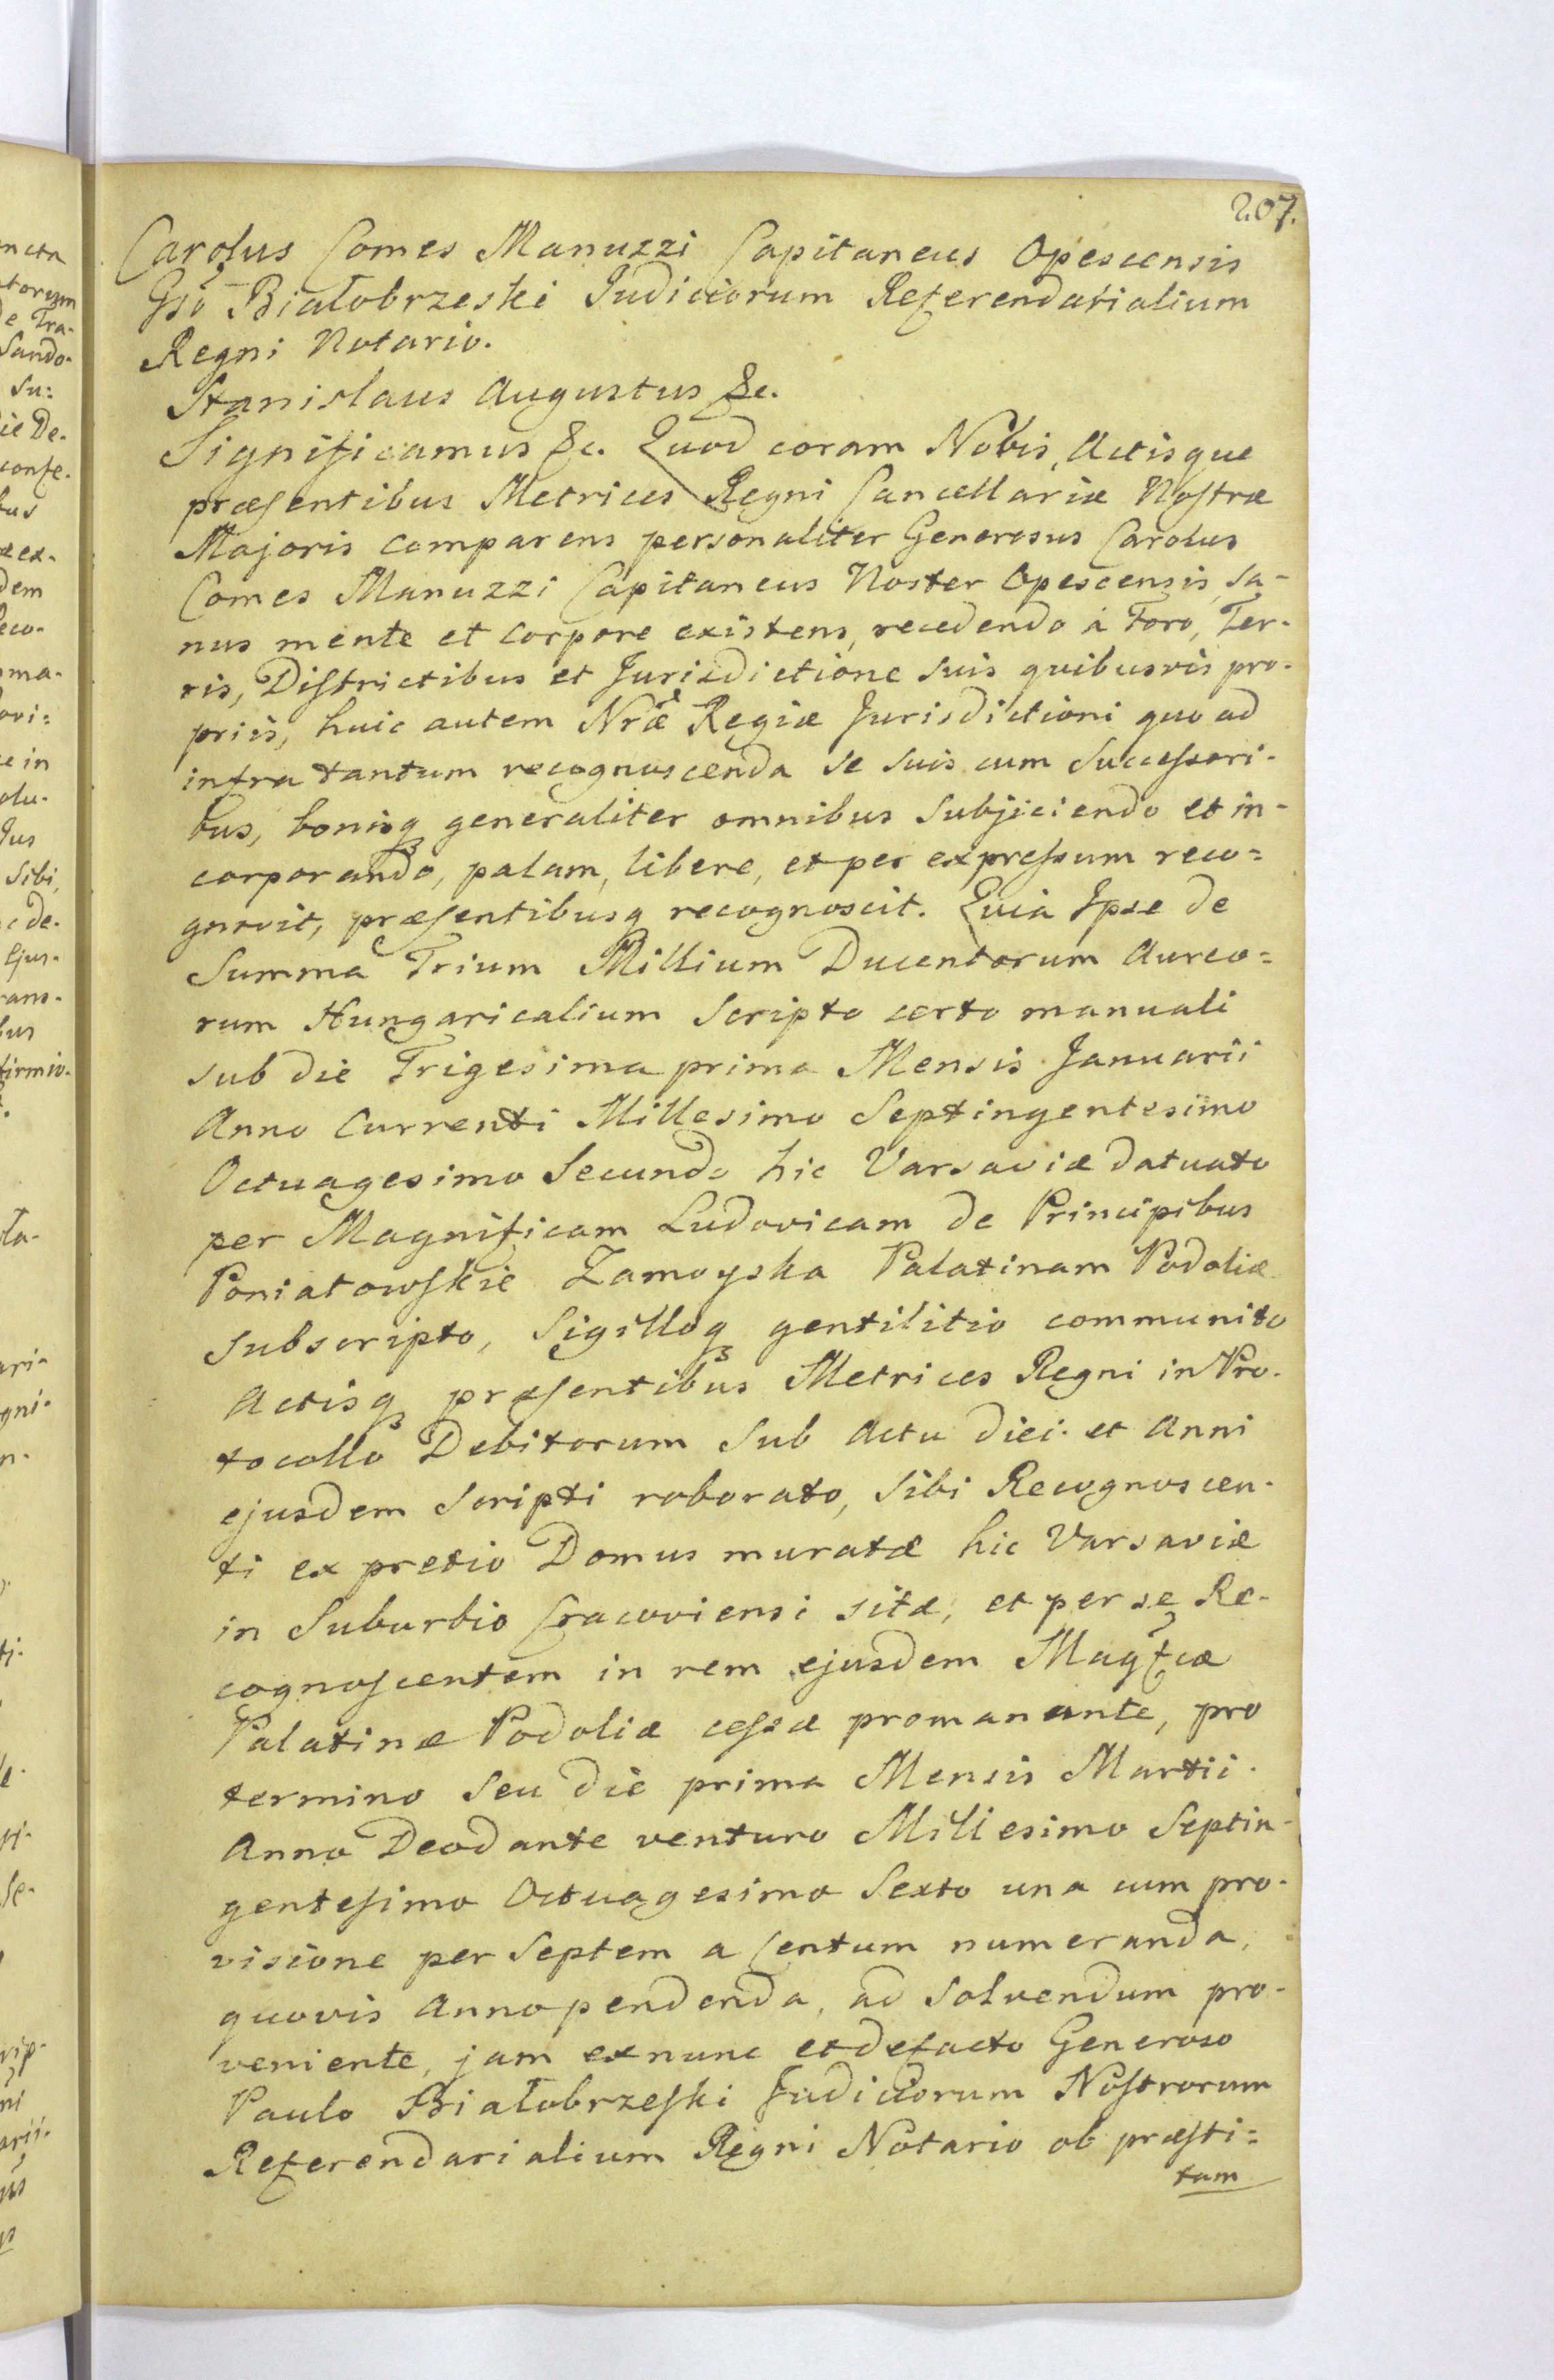 207.
Carolus Comes Manuzzi Capitaneus Opescensis
Gso Białobrzeski Judiciorum Referendarialium
Regni Notario.
Stanislaus Augustus &c.
Significamus &c. Quod coram Nobis, Actisque
præsentibus Metrices Regni Cancellariæ Nostræ
Majoris comparens personaliter Generosus Carolus
Comes Manuzzi Capitaneus Noster Opescensis, sa-
nus mente et corpore existens, recedendo à Foro, Ter-
ris, Districtibus et Jurisdictione suis quibusvis pro-
priis, huic autem Nræ Regiæ Jurisdictioni quo ad
infra tantum recognoscenda se suis cum Successori-
bus, bonisq generaliter omnibus subjiciendo et in-
corporando, palam, libere, et per expressum reco=
gnovit, præsentibusq recognoscit. Quia Ipse de
Summa Trium Millium Ducentorum Aureo=
rum Hungaricalium scripto certo manuali
sub die Trigesima prima Mensis Januarii
Anno Currenti Millesimo Septingentesimo
Octuagesimo Secundo hic Varsaviæ datuato
per Magnificam Ludovicam de Principibus
Poniatowskie Zamoyska Palatinam Podoliæ
subscripto, Sigilloq gentilitio communito
Actisq præsentibus Metrices Regni in Pro-
tocollo Debitorum sub Actu diei et Anni
ejusdem scripti roborato, sibi Recognoscen-
ti ex pretio Domus muratæ hic Varsaviæ
in Suburbio Cracoviensi sitæ, et per se Re-
cognoscentem in rem ejusdem Magfcæ
Palatinæ Podoliæ cessæ promanante, pro
termino seu die prima Mensis Martii
Anno Deodante venturo Millesimo Septin-
gentesimo Octuagesimo Sexto una cum pro-
visione per Septem a Centum numeranda,
quovis Anno pendenda, ad solvendum pro-
veniente, jam exnunc et defacto Generoso
Paulo Białobrzeski Judiciorum Nostrorum
Referendarialium Regni Notario ob præsti=
tam